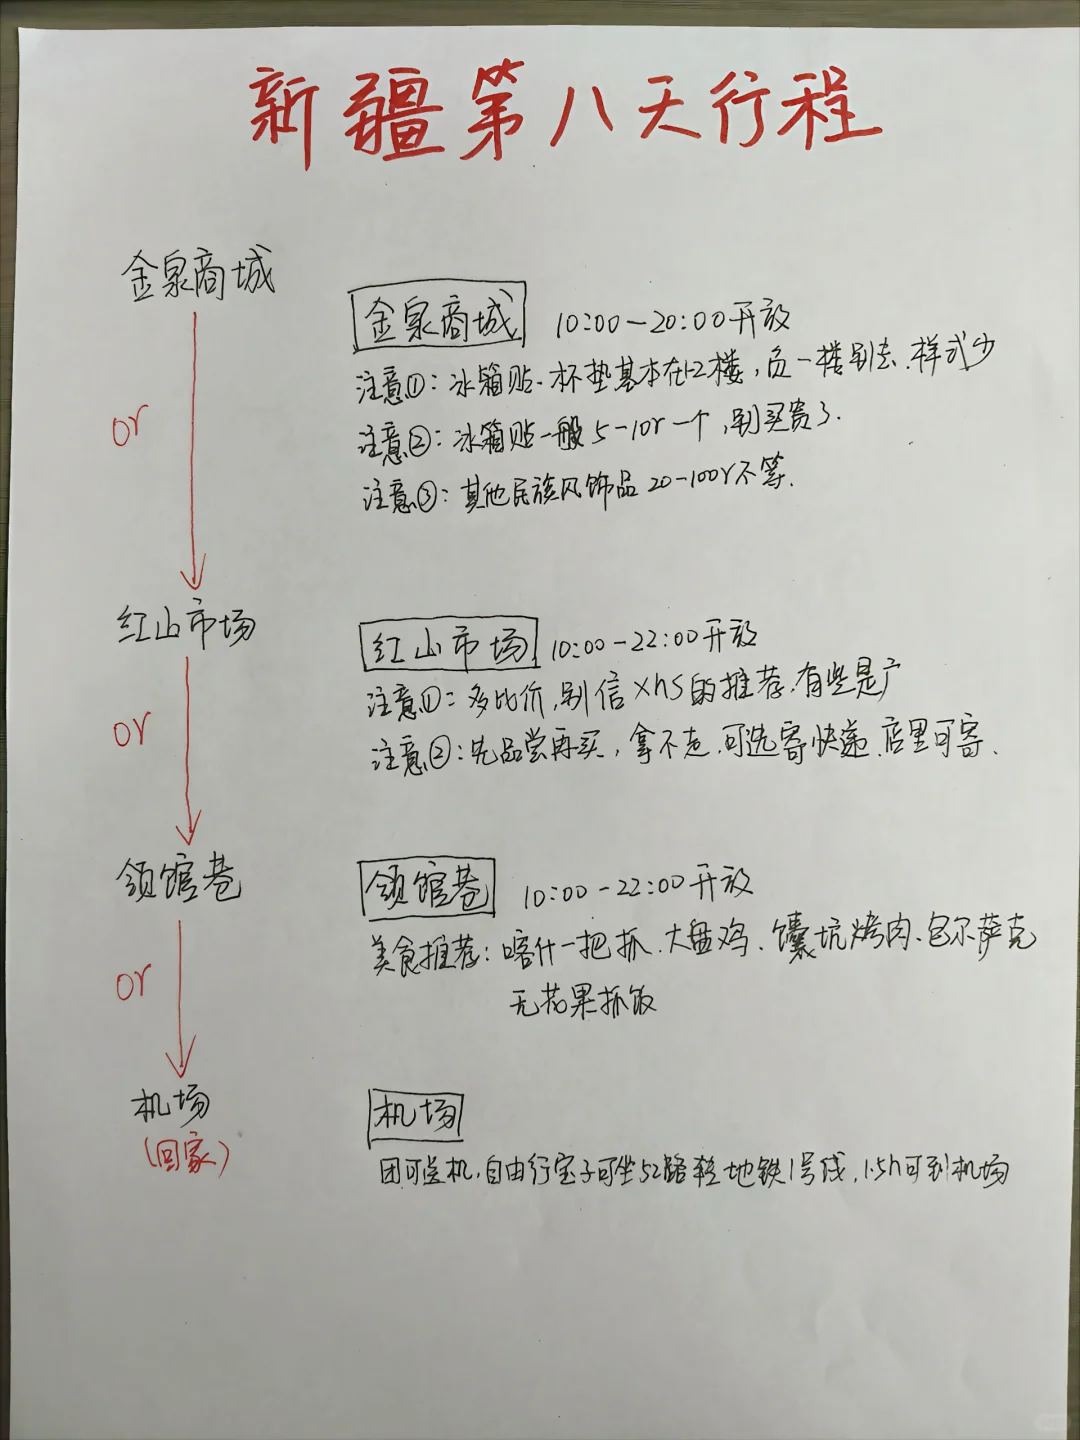 新疆第八天行程
金泉商城
or
红山市场
or
领馆巷
or
机场
(回家)
金泉商城 10:00-20:00开放
注意①:冰箱贴、杯垫基本在1-2楼,负一楼别去、样式少
注意②:冰箱贴一般5-10r一个,别买贵了.
注意③:其他民族风饰品20-100r不等.
红山市场 10:00-22:00开放
注意①:多比价,别信xhs的推荐,有些是广
注意②:先品尝再买,拿不走,可选寄快递,店里可寄.
领馆巷 10:00-22:00开放
美食推荐:喀什一把抓、大盘鸡、馕坑烤肉、包尔萨克
无花果抓饭
机场
团可送机,自由行宝子可坐52路转地铁1号线,1.5h可到机场